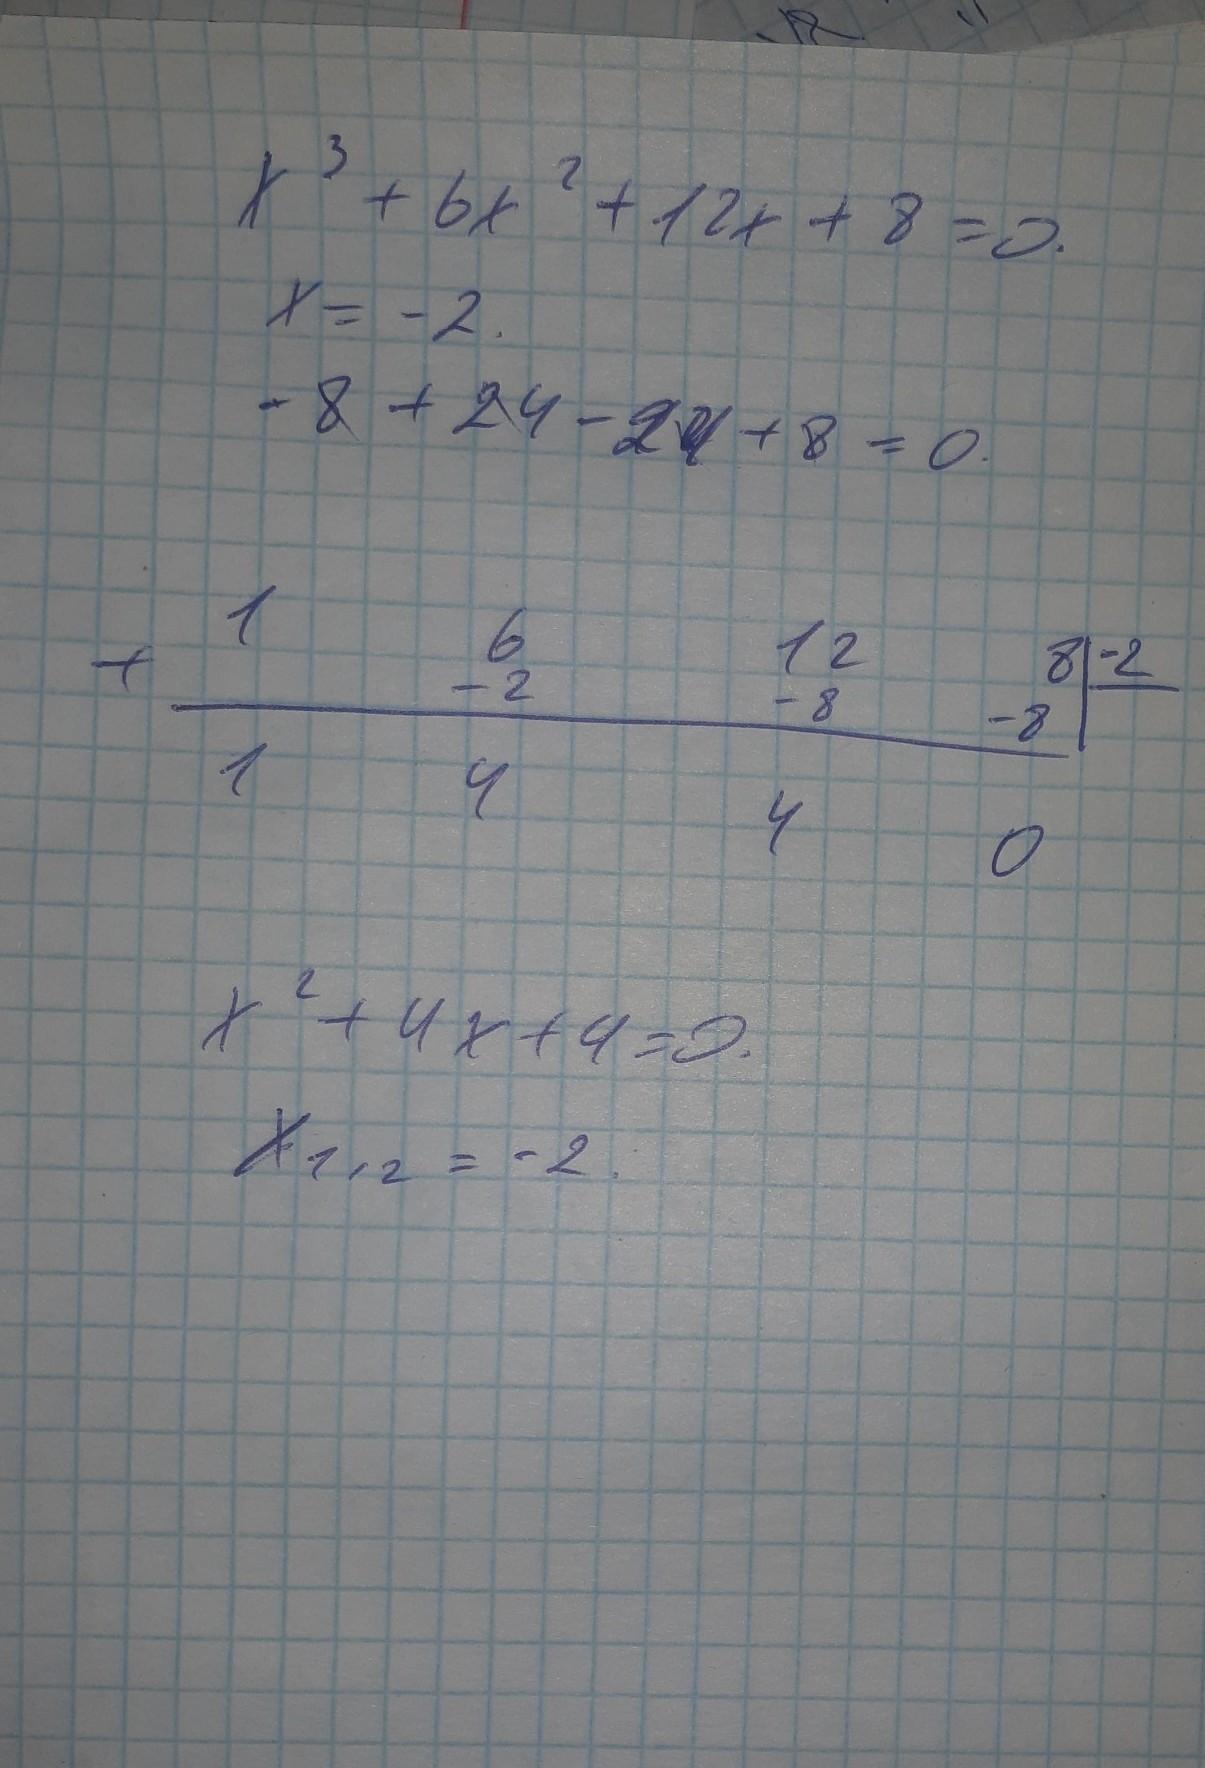 x³ + 6x² + 12x + 8 = 0.
x = -2.
-8 + 24 - 24 + 8 = 0.
+ 1 6 12 8 | -2
-2 -8 -8
1 4 4 0
x² + 4x + 4 = 0.
x₁,₂ = -2.